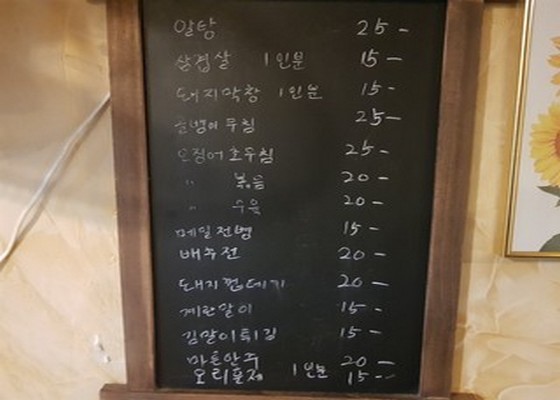 알탕 25-
삼겹살 1인분 15-
돼지막창 1인분 15-
골뱅이무침 25-
오징어초무침 25-
〃 볶음 20-
〃 수육 20-
메밀전병 15-
배추전 20-
돼지껍데기 20-
계란말이 15-
김말이튀김 15-
마른안주 20-
오리훈제 1인분 15--